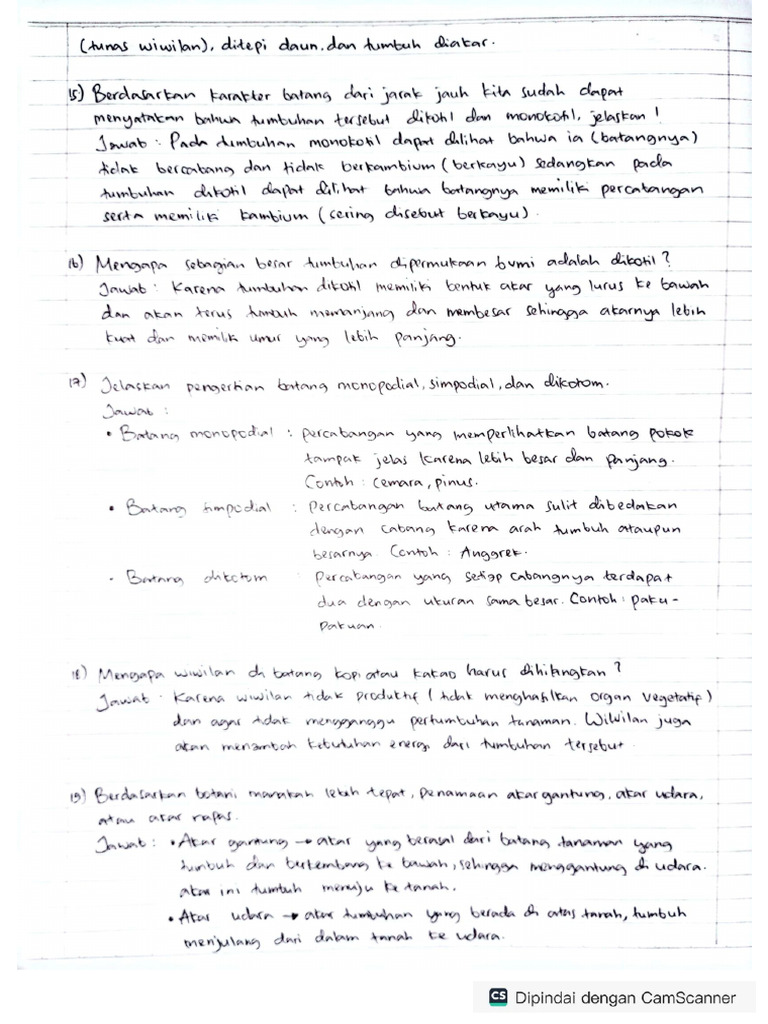 (tunas wiwilan), ditepi daun, dan tumbuh diakar.
15) Berdasarkan karakter batang dari jarak jauh kita sudah dapat
menyatakan bahwa tumbuhan tersebut dikotil dan monokotil, jelaskan!
Jawab : Pada tumbuhan monokotil dapat dilihat bahwa ia (batangnya)
tidak bercabang dan tidak berkambium (berkayu) sedangkan pada
tumbuhan dikotil dapat dilihat bahwa batangnya memiliki percabangan
serta memiliki kambium (sering disebut berkayu).
16) Mengapa sebagian besar tumbuhan dipermukaan bumi adalah dikotil?
Jawab : Karena tumbuhan dikotil memiliki bentuk akar yang lurus ke bawah
dan akan terus tumbuh memanjang dan membesar sehingga akarnya lebih
kuat dan memilik umur yang lebih panjang.
17) Jelaskan pengertian batang monopodial, simpodial, dan dikotom.
Jawab :
• Batang monopodial : percabangan yang memperlihatkan batang pokok
tampak jelas karena lebih besar dan panjang.
Contoh : cemara, pinus.
• Batang simpodial : Percabangan batang utama sulit dibedakan
dengan cabang karena arah tumbuh ataupun
besarnya. Contoh : Anggrek.
• Batang dikotom : Percabangan yang setiap cabangnya terdapat
dua dengan ukuran sama besar. Contoh : paku-
pakuan.
18) Mengapa wiwilan di batang kopi atau kakao harus dihilangkan?
Jawab : Karena wiwilan tidak produktif (tidak menghasilkan organ vegetatif)
dan agar tidak mengganggu pertumbuhan tanaman. Wiwilan juga
akan menambah kebutuhan energi dari tumbuhan tersebut.
19) Berdasarkan botani manakah lebih tepat, penamaan akar gantung, akar udara,
atau akar napas.
Jawab : • Akar gantung → akar yang berasal dari batang tanaman yang
tumbuh dan berkembang ke bawah, sehingga menggantung di udara.
akar ini tumbuh menuju ke tanah.
• Akar udara → akar tumbuhan yang berada di atas tanah, tumbuh
menjulang dari dalam tanah ke udara.
CS Dipindai dengan CamScanner